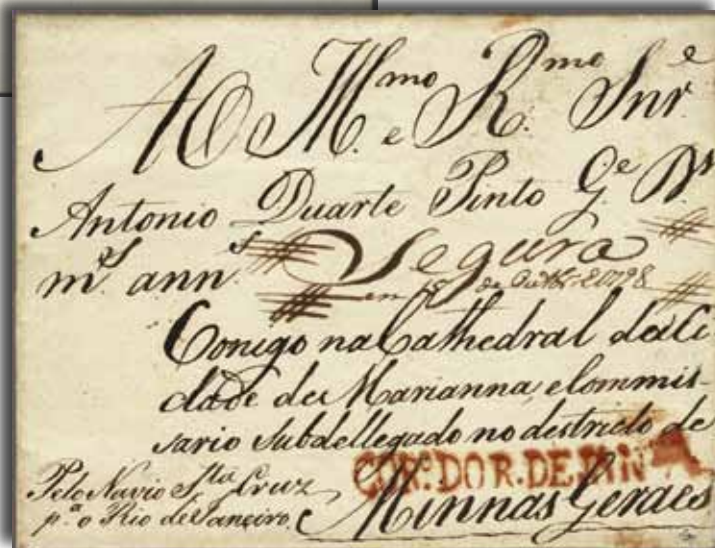 AO M.mo e R.mo Snr.e
Antonio Duarte Pinto G.e D.s
m.s ann.s Segura
em de Outbr.o 1798
Conigo na Cathedral da Ci
dade de Marianna, e Commis-
sario subdellegado no destricto de
COR.o DO R. DE
Minnas Geraes
Pelo Navio S.ta Cruz
p.a o Rio de Janeiro.